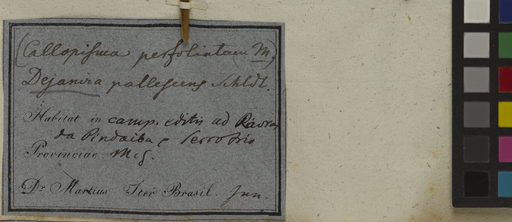 (Callopisma perfoliatum M)
Dejanira pallescens Schldt.
Habitat in camp. editis ad
da Pindaiba, Serro frio
Provinciae M.G.
Dr. Martius Iter Brasil. Jun.